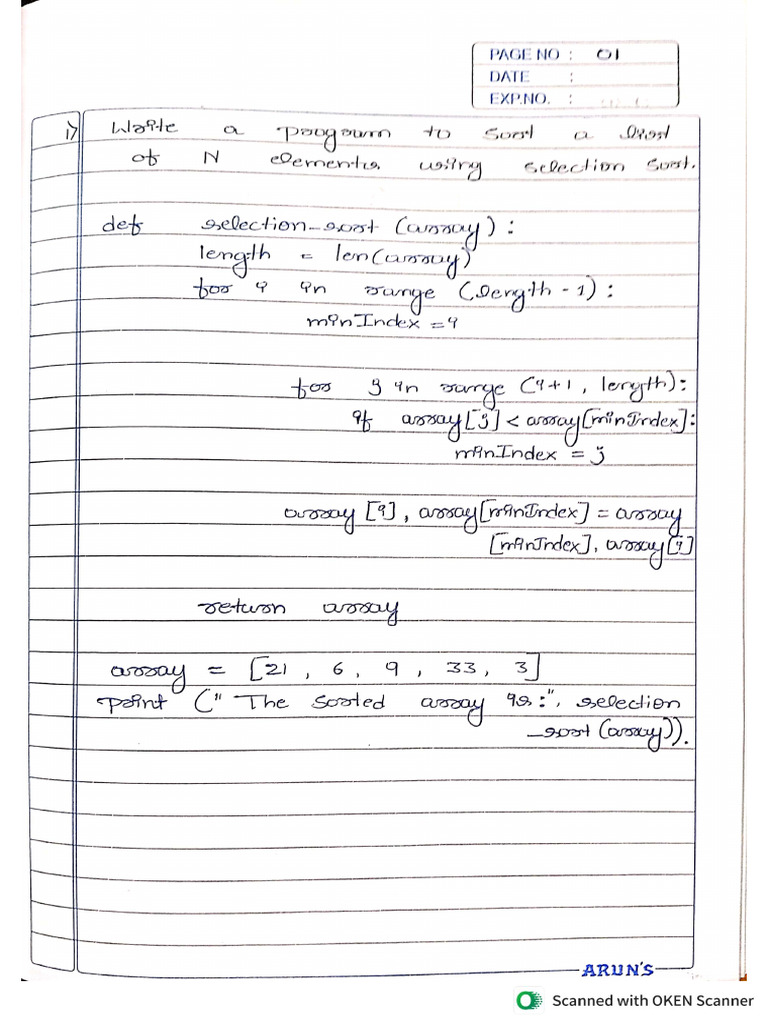 PAGE NO : 01
DATE :
EXP.NO. :
1) Write a program to sort a list
of N elements using selection sort.
def selection-sort (array) :
length = len(array)
for i in range (length - 1) :
minIndex = i
for j in range (i+1, length):
if array[j] < array[minIndex]:
minIndex = j
array [i], array[minIndex] = array
[minIndex], array[i]
return array
array = [21, 6, 9, 33, 3]
print (" The sorted array is:", selection
-sort (array)).
ARUN'S
Scanned with OKEN Scanner